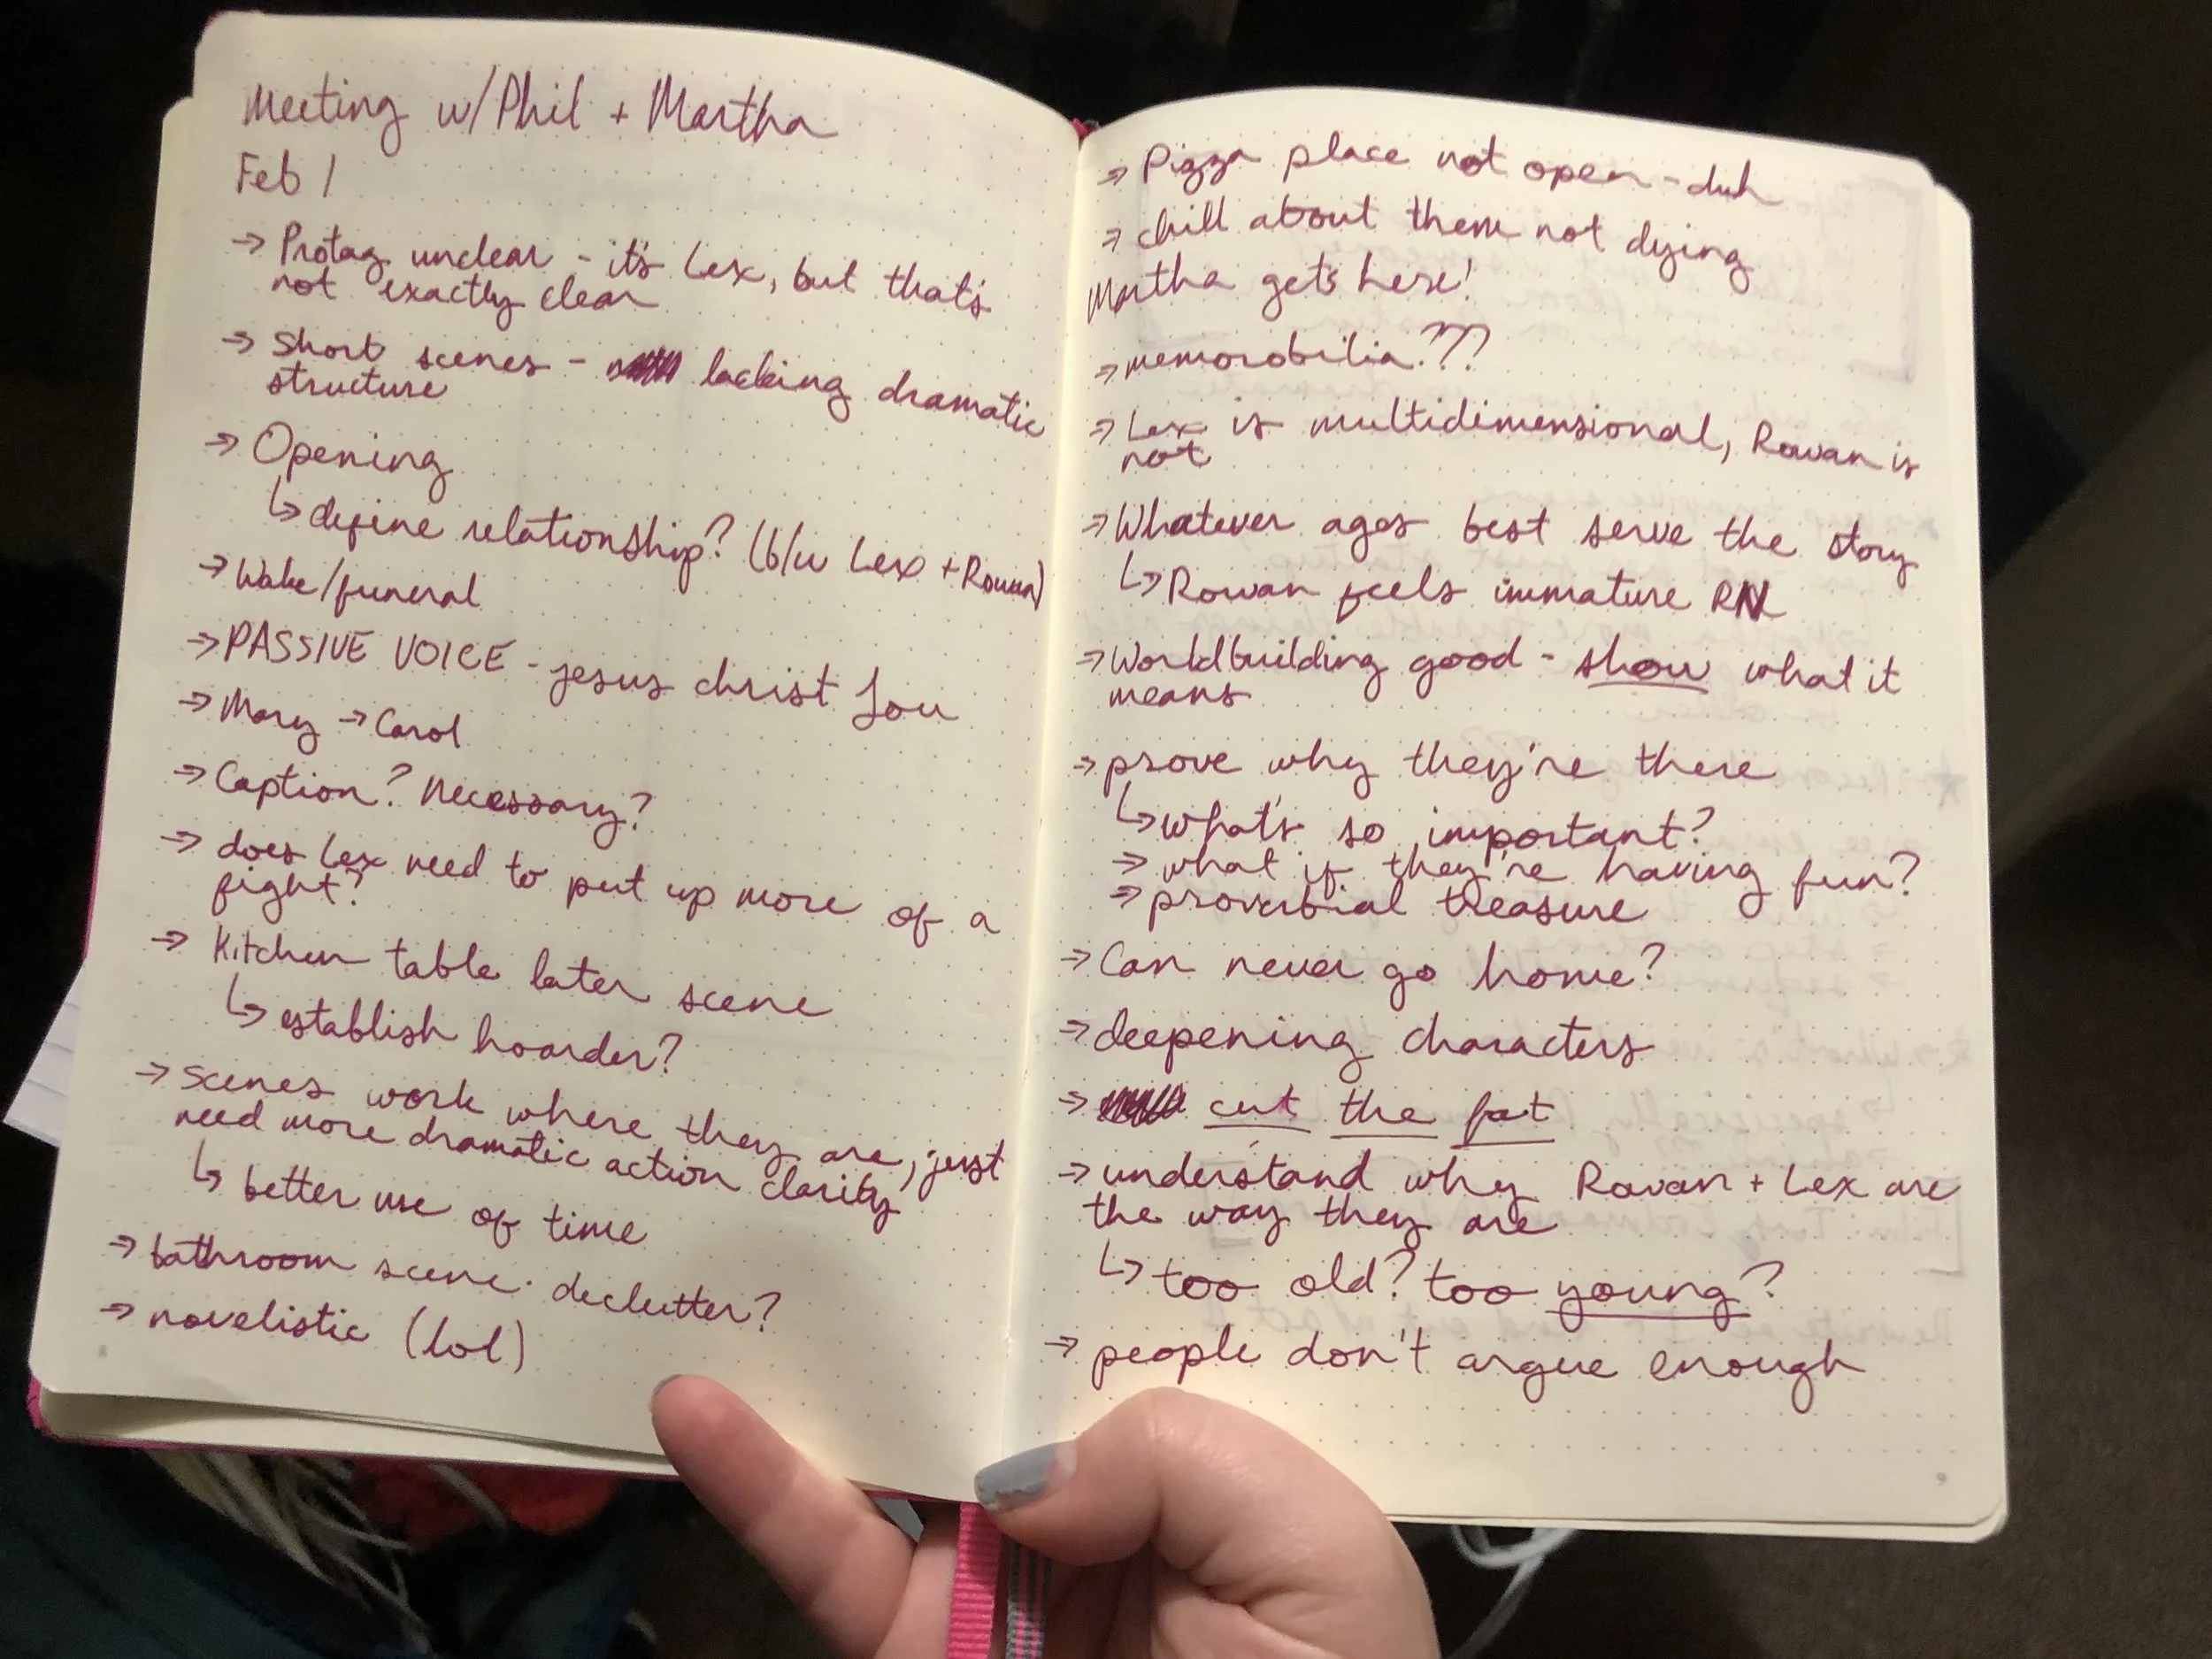 Meeting w/Phil + Martha
Feb 1
→ Protag unclear - it's Lex, but that's
not exactly clear
→ Short scenes - lacking dramatic
structure
→ Opening
↳ define relationship? (b/w Lex + Rowan)
→ Wake/funeral
→ PASSIVE VOICE - jesus christ Lou
→ Mary → Carol
→ Caption? Necessary?
→ does Lex need to put up more of a
fight?
→ Kitchen table later scene
↳ establish hoarder?
→ scenes work where they are, just
need more dramatic action clarity
↳ better use of time
→ bathroom scene. declutter?
→ novelistic (lol)
8
→ Pizza place not open - duh
→ chill about them not dying
Martha gets here!
→ memorobilia???
→ Lex is multidimensional, Rowan is
not
→ Whatever ages best serve the story
↳ Rowan feels immature RN
→ Worldbuilding good - show what it
means
→ prove why they're there
↳ what's so important?
→ what if they're having fun?
→ proverbial treasure
→ Can never go home?
→ deepening characters
→ cut the fat
→ understand why Rowan + Lex are
the way they are
↳ too old? too young?
→ people don't argue enough
9